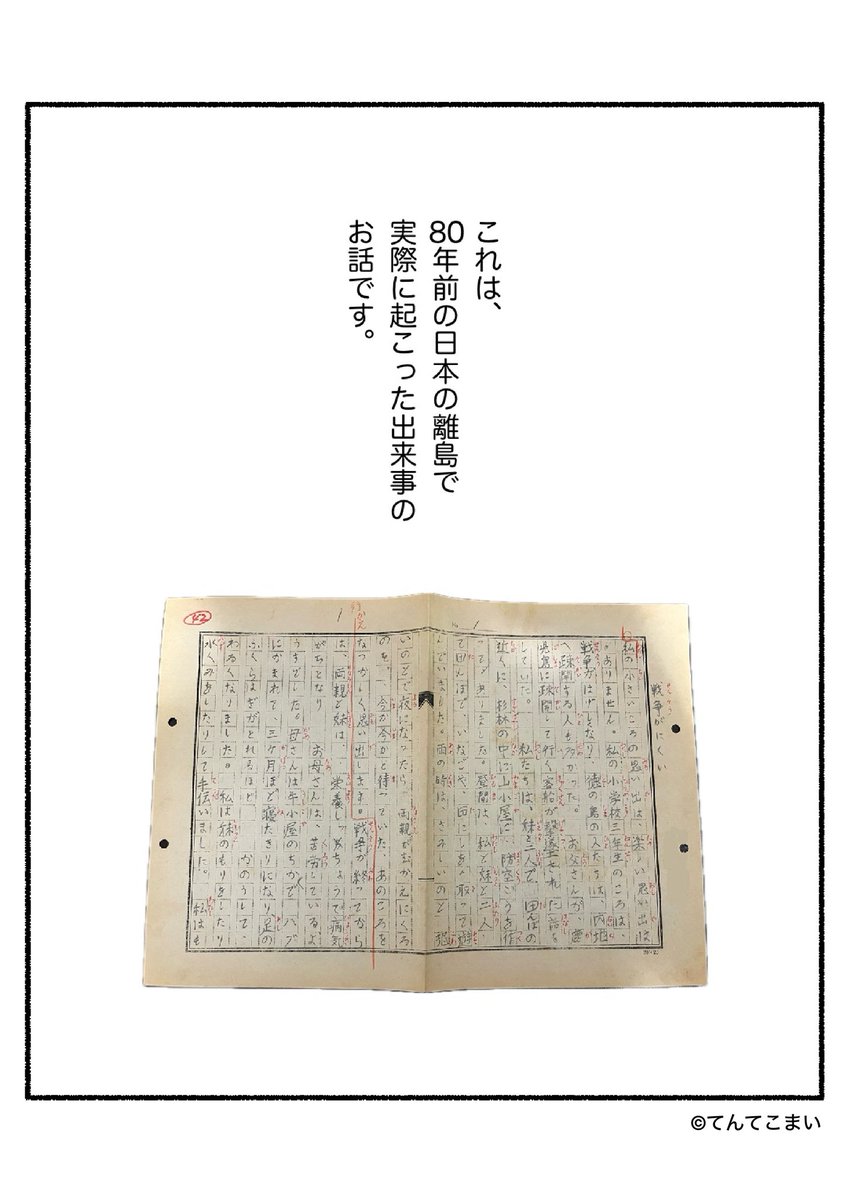 これは、
80年前の日本の離島で
実際に起こった出来事の
お話です。
42
戦争がにくい
私の小さいころの思い出は、楽しい思い出は
ありません。私の小学校三年生のころは、
戦争がはげしくなり 徳の島の人たちは、内地
へ疎開する人も多かった。 お父さんが、鹿
児島に疎開して行く客船が撃沈された話を
していた。 私たちは、妹と二人で、田んぼの
近くに、杉林の中に山小屋と、防空ごうを作
ってありました。昼間は、私と妹と二人
で田んぼで、いなごや、田にしを取って遊
んでいました。雨の時は、さみしいのと
いのとで夜になったら 両親がむかえにくる
のを、 今か今かと待っていた、あのころを
なつかしく思い出します。戦争が終ってから
は、両親と妹は、 栄養しっちょうで病気
がちとなり お母さんは、苦労しているよ
うちでした。母さんは牛小屋のちかで ハブ
にかまれて、三ケ月ほど寝たきりになり足の
ふくらはぎがとれるほど かのうして、
わるくなりました。 私は妹のもりをし
水くみをしたりして手伝いました。 私はも
©てんてこまい